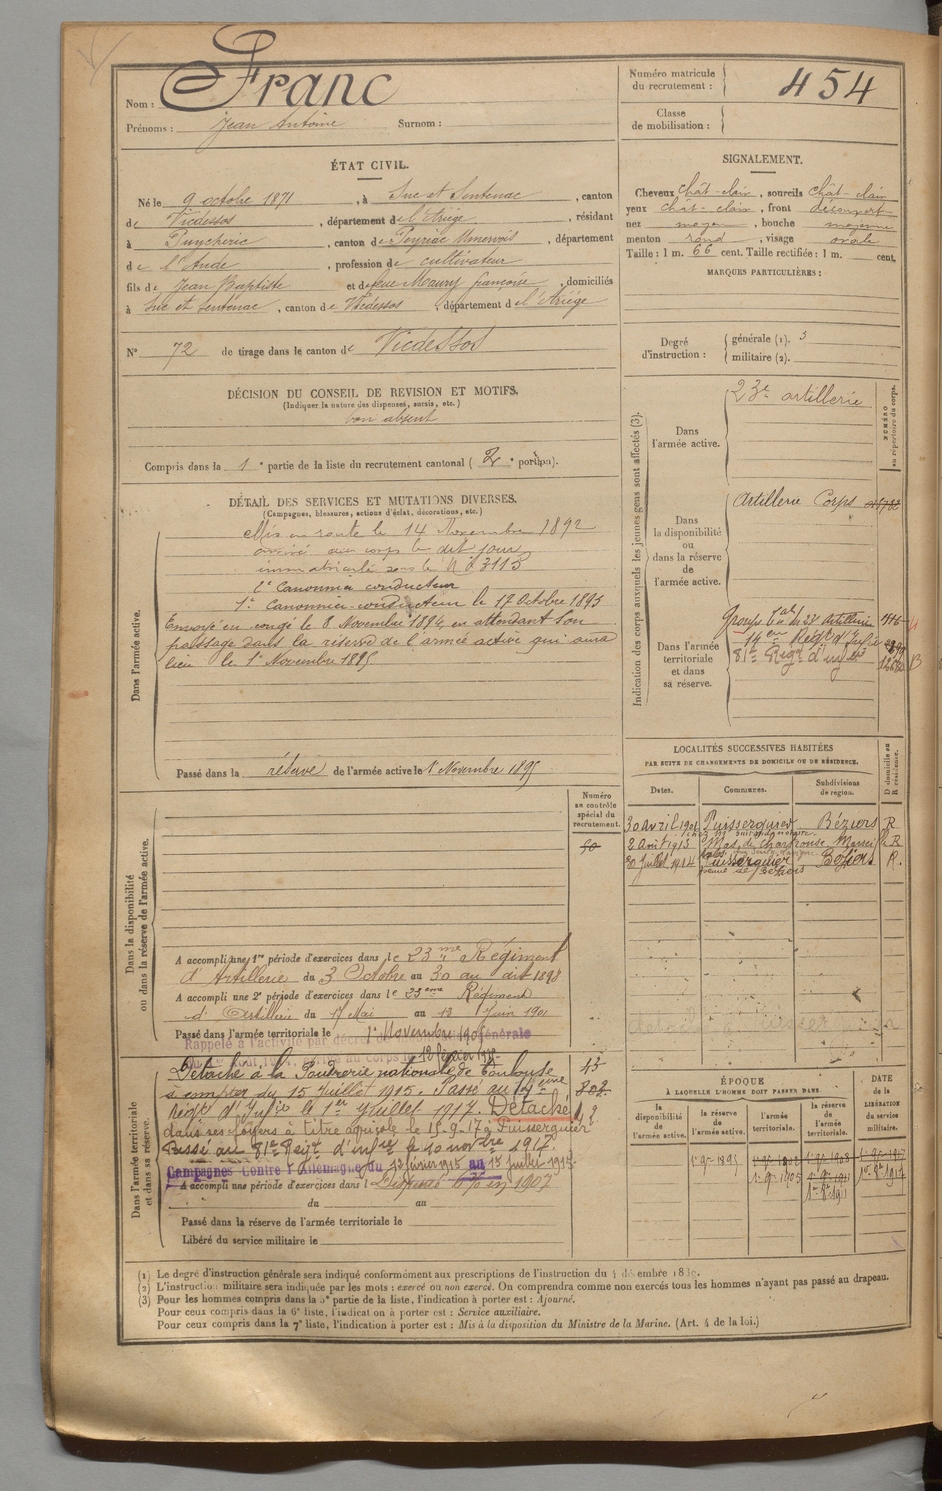 Nom : Franc
Prénoms : Jean Antoine Surnom :
Numéro matricule du recrutement : 454
Classe de mobilisation :
ÉTAT CIVIL.
Né le 9 octobre 1871, à Suc et Sentenac, canton
de Vicdessos, département de l'Ariège, résidant
à Puichéric, canton de Peyriac Minervois, département
de l'Aude, profession de cultivateur
fils de Jean Baptiste et de feue Maury françoise, domiciliés
à Suc et Sentenac, canton de Vicdessos, département de l'Ariège
N° 72 de tirage dans le canton de Vicdessos
SIGNALEMENT.
Cheveux chât-clair, sourcils chât-clair
yeux chât-clair, front découvert
nez moyen, bouche moyenne
menton rond, visage ovale
Taille : 1 m. 66 cent. Taille rectifiée : 1 m. cent.
MARQUES PARTICULIÈRES :
Degré d'instruction : générale (1). 3
militaire (2).
DÉCISION DU CONSEIL DE REVISION ET MOTIFS.
(Indiquer la nature des dispenses, sursis, etc.)
bon absent
Compris dans la 1e partie de la liste du recrutement cantonal ( 2e portion).
DÉTAIL DES SERVICES ET MUTATIONS DIVERSES.
(Campagnes, blessures, actions d'éclat, décorations, etc.)
Dans l'armée active.
Mis en route le 14 Novembre 1892
arrivé au corps le dit jour,
immatriculé sous le N° 3113
2e Canonnier conducteur
1er Canonnier conducteur le 17 Octobre 1893
Envoyé en congé le 8 Novembre 1894 en attendant son
passage dans la réserve de l'armée active qui aura
lieu le 1er Novembre 1895
Passé dans la réserve de l'armée active le 1er Novembre 1895
Indication des corps auxquels les jeunes gens sont affectés (3).
NUMÉRO au répertoire du corps.
Dans l'armée active.
23e artillerie
Dans la disponibilité ou dans la réserve de l'armée active.
Artillerie Corps
Dans l'armée territoriale et dans sa réserve.
81e Régt d'infie
LOCALITÉS SUCCESSIVES HABITÉES
PAR SUITE DE CHANGEMENTS DE DOMICILE OU DE RÉSIDENCE.
Dates. Communes. Subdivisions de région. D domicile ou R résidence.
30 avril 1901 Puisserguier Béziers R
2 Août 1913 Mas de Chartrouse R
20 Juillet 1914 Puisserguier Béziers R.
Dans la disponibilité ou dans la réserve de l'armée active.
Numéro au contrôle spécial du recrutement.
A accompli une 1re période d'exercices dans le 23me Régiment
d'Artillerie du 3 Octobre au 30 au dit 1898
A accompli une 2e période d'exercices dans le 23ème Régiment
d'Artillerie du 17 Mai au 13 Juin 1901
Passé dans l'armée territoriale le 1er Novembre 1905
Dans l'armée territoriale et dans sa réserve.
Détaché à la Poudrerie nationale de Toulouse
à compter du 15 Juillet 1915. Passé au 14ème
régt d'Infie le 1er Juillet 1917. Détaché
dans ses foyers à titre agricole le 15-9-17 à Puisserguier
Passé au 81e Régt d'infie le 10 novbre 1917.
Campagnes Contre l'Allemagne du 12 février 1915 au 15 juillet 1915
A accompli une période d'exercices dans l en 1907
du au
Passé dans la réserve de l'armée territoriale le
Libéré du service militaire le
ÉPOQUE
À LAQUELLE L'HOMME DOIT PASSER DANS
la disponibilité de l'armée active. la réserve de l'armée active. l'armée territoriale. la réserve de l'armée territoriale.
DATE de la LIBÉRATION du service militaire.
(1) Le degré d'instruction générale sera indiqué conformément aux prescriptions de l'instruction du 4 décembre 1889.
(2) L'instruction militaire sera indiquée par les mots : exercé ou non exercé. On comprendra comme non exercés tous les hommes n'ayant pas passé au drapeau.
(3) Pour les hommes compris dans la 5e partie de la liste, l'indication à porter est : Ajourné.
Pour ceux compris dans la 6e liste, l'indication à porter est : Service auxiliaire.
Pour ceux compris dans la 7e liste, l'indication à porter est : Mis à la disposition du Ministre de la Marine. (Art. 4 de la loi.)